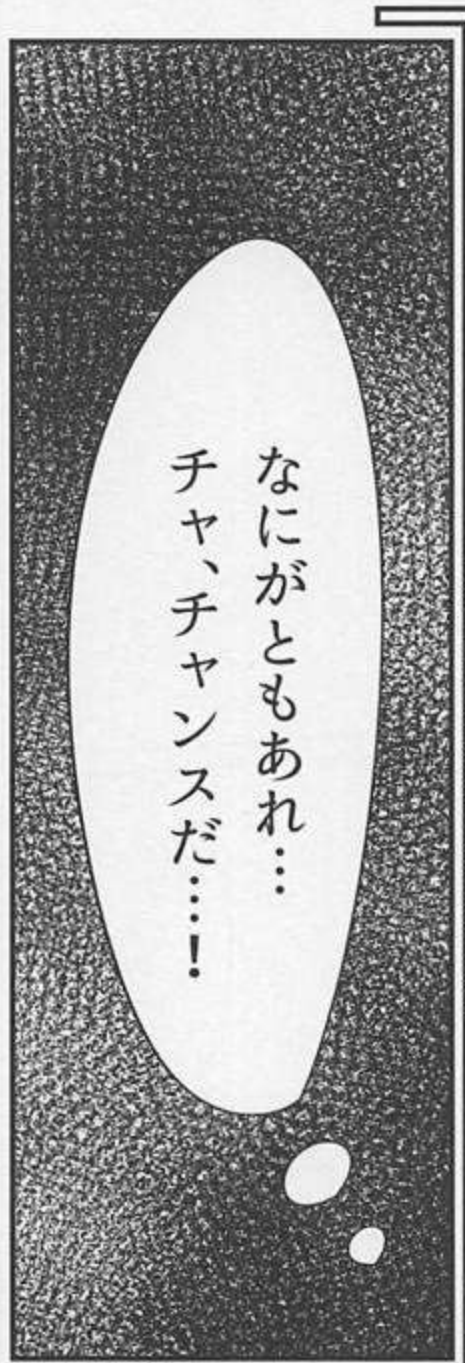 なにがともあれ…
チャ、チャンスだ…！